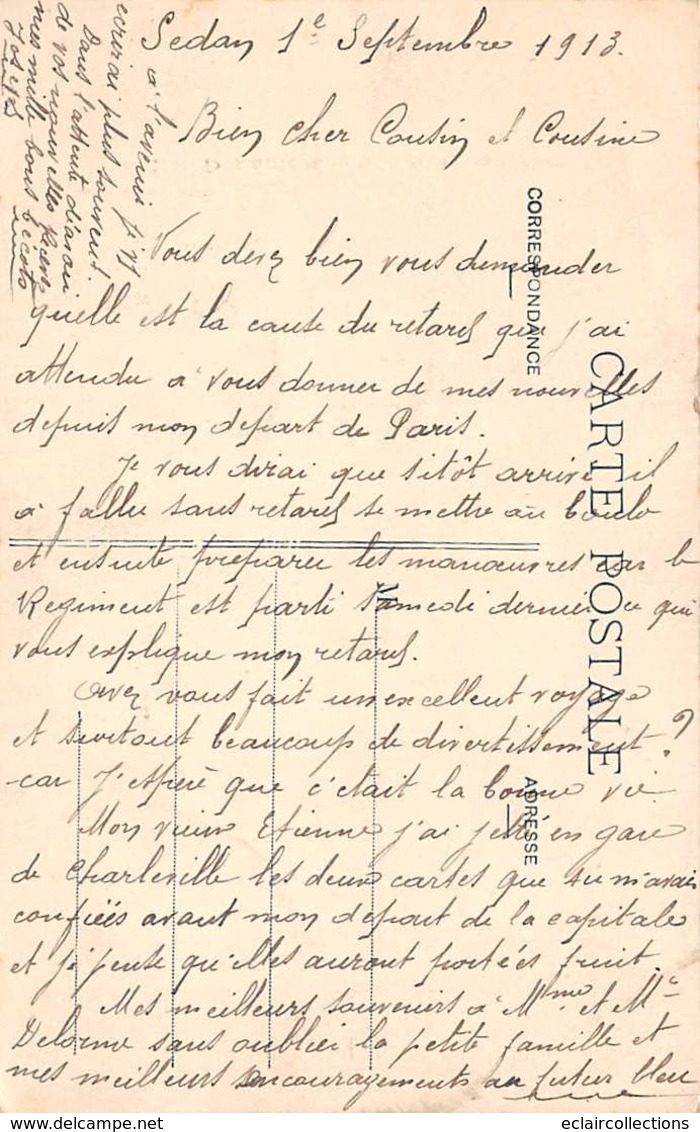 Sedan 1e Septembre 1913.
Bien cher Cousin et Cousine
Vous devez bien vous demander
quelle est la cause du retard que j'ai
attendu a vous donner de mes nouvelles
depuis mon depart de Paris.
Je vous dirai que sitôt arrivé il
a fallu sans retard se mettre au boulo
et ensuite preparer les manœuvres car le
Regiment est parti samedi dernier ce qui
vous explique mon retard.
Avez vous fait un excellent voyage
et surtout beaucoup de divertissement?
-car J'espère que c'etait la bonne vie.
Mon vieux Etienne j'ai jeté en gare
de Charleville les deux cartes que tu m'avais
confiées avant mon depart de la capitale
et je pense qu'elles auront portées fruit.
Mes meilleurs souvenirs a Mme et Mr
Delorme sans oublier la petite famille et
mes meilleurs encouragements au futur bleu
a l'avenir j'
ecrirai plus souvent.
Dans l'attente d'avoir
de vos nouvelles
mes mille bons becots
CORRESPONDANCE
CARTE POSTALE
M
ADRESSE
eclaircollections